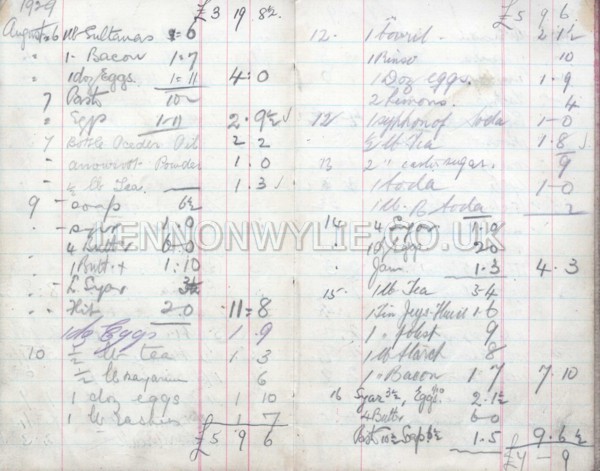 1929
£3 19 8½
August 6 1 lb Sultanas 1=6
" 1- Bacon 1=7
" 1 doz Eggs 1=11 4=0
7 Past 10½
" Eggs 1-11 2.9½ ✓
7 Bottle Oil 2 2
- arrowroot Powder 1.0
- ¼ lb Tea 1.3 ✓
9 - soap 6½
1.0
4 Butter 6-0
1 Butt 1=10
2 Sugar
2.0 .11=8
1 dg Eggs 1.9
10 ½ lb tea 1 3
½ lb 6
1 doz eggs 1 10
1 lb rashers 1 7
£5 9 6
£5 9 6
12. 1 Bovril 2-1½
1 Rinso 10
1 Doz eggs. 1-9
2 Lemons. 4
12 1 syphon of soda 1-0
½ lb Tea 1.8 ✓
13 2" castersugar. 9
1 Soda 1-0
1 lb B Soda 2
14 4 Sugar
10 Eggs 2.0
Jam 1.3 4.3
15. 1 lb Tea 3-4
1 Tin Jeys Fluid 1.6
1 " 9
1 lb Starch 8
1 " Bacon 1.7 7.10
16 Sugar 3½, Eggs 2.1½
4 Butter 6-0
Past 10½ Soap 6½ 1.5 9.6½
LENNONWYLIE.CO.UK